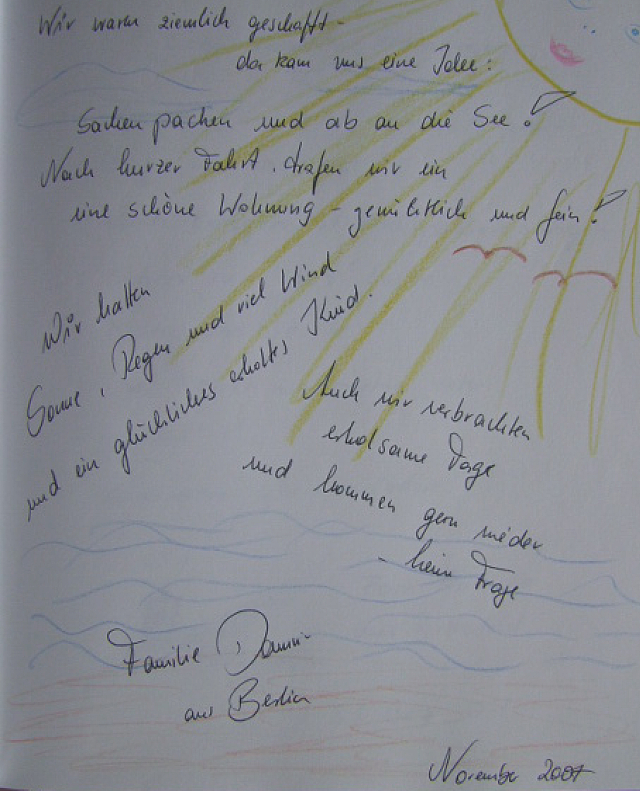 Wir waren ziemlich geschafft -
da kam uns eine Idee:
Sachen packen und ab an die See!
Nach kurzer Fahrt, trafen wir ein
eine schöne Wohnung - gemütlich und fein!
Wir hatten
Sonne, Regen und viel Wind
und ein glückliches erholtes Kind.
Auch wir verbrachten
erholsame Tage
und kommen gern wieder
- keine Frage
Familie
aus Berlin
November 2007